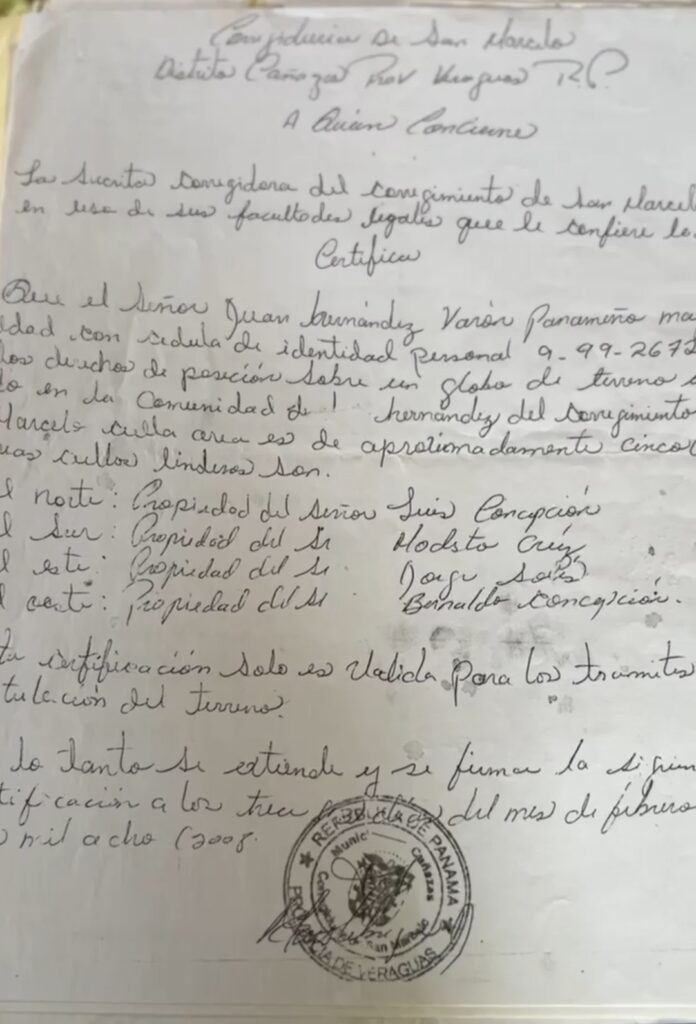 Corregiduria de San Marcelo
Distrito Cañazas Prov Veraguas R.P.
A Quien Concierne
La Sucrita Corregidora del corregimiento de San Marcel
en uso de sus facultades legales que le confiere le
Certifica
Que el Señor Juan hernández Varón Panameño ma
edad con cedula de identidad personal 9-99-2672
los derechos de poseción sobre un globo de terreno
do en la Comunidad de hernández del corregimiento
Marcelo cullo area es de aproximadamente cinco
eas cullos linderos son.
l norte: Propiedad del señor Luis Concepción
l sur: Propiedad del Sr Modsto Cruz
l este: Propiedad del Sr Jorge Solís
l oeste: Propiedad del Sr Bernaldo Concepción.
ta certificación solo es Valida para los tramites
tulación del terreno.
lo tanto se extiende y se firma la siguien
tificación a los trece días del mes de febrero
mil ocho (2008.
REPUBLICA DE PANAMA
Munic Cañazas
San Marcelo
PROVINCIA DE VERAGUAS